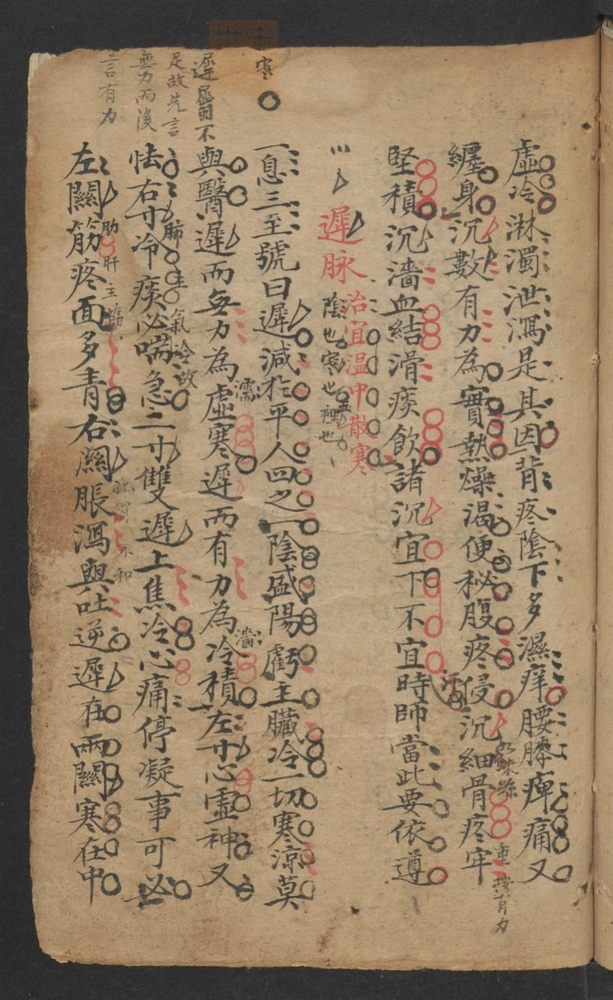 虛冷淋濁泄瀉是其因背疼陰下多濕痒腰膝痺痛又
纏身沉數有力為實熱燥渴便秘腹疼侵沉細骨疼牢
蛛絲
重按有力
堅積沉濇血結滑痰飲諸沉宜下不宜時師當此要依遵
遲脉
治宜温中散寒
陰也寒也
裡也
寒
一息三至號曰遲減於平人四之一陰盛陽虧主臟冷一切寒涼莫
與醫遲而無力為虛寒遲而有力為冷積左寸心虛神又
濡
濇
遲屬不
足故先言
無力而後
言有力
怯右寸冷痰必喘急二寸雙遲上焦冷心痛停凝事可必
肺主氣冷故
左關筋疼面多青右關脹瀉與吐逆遲在兩關寒在中
肝主筋
不和